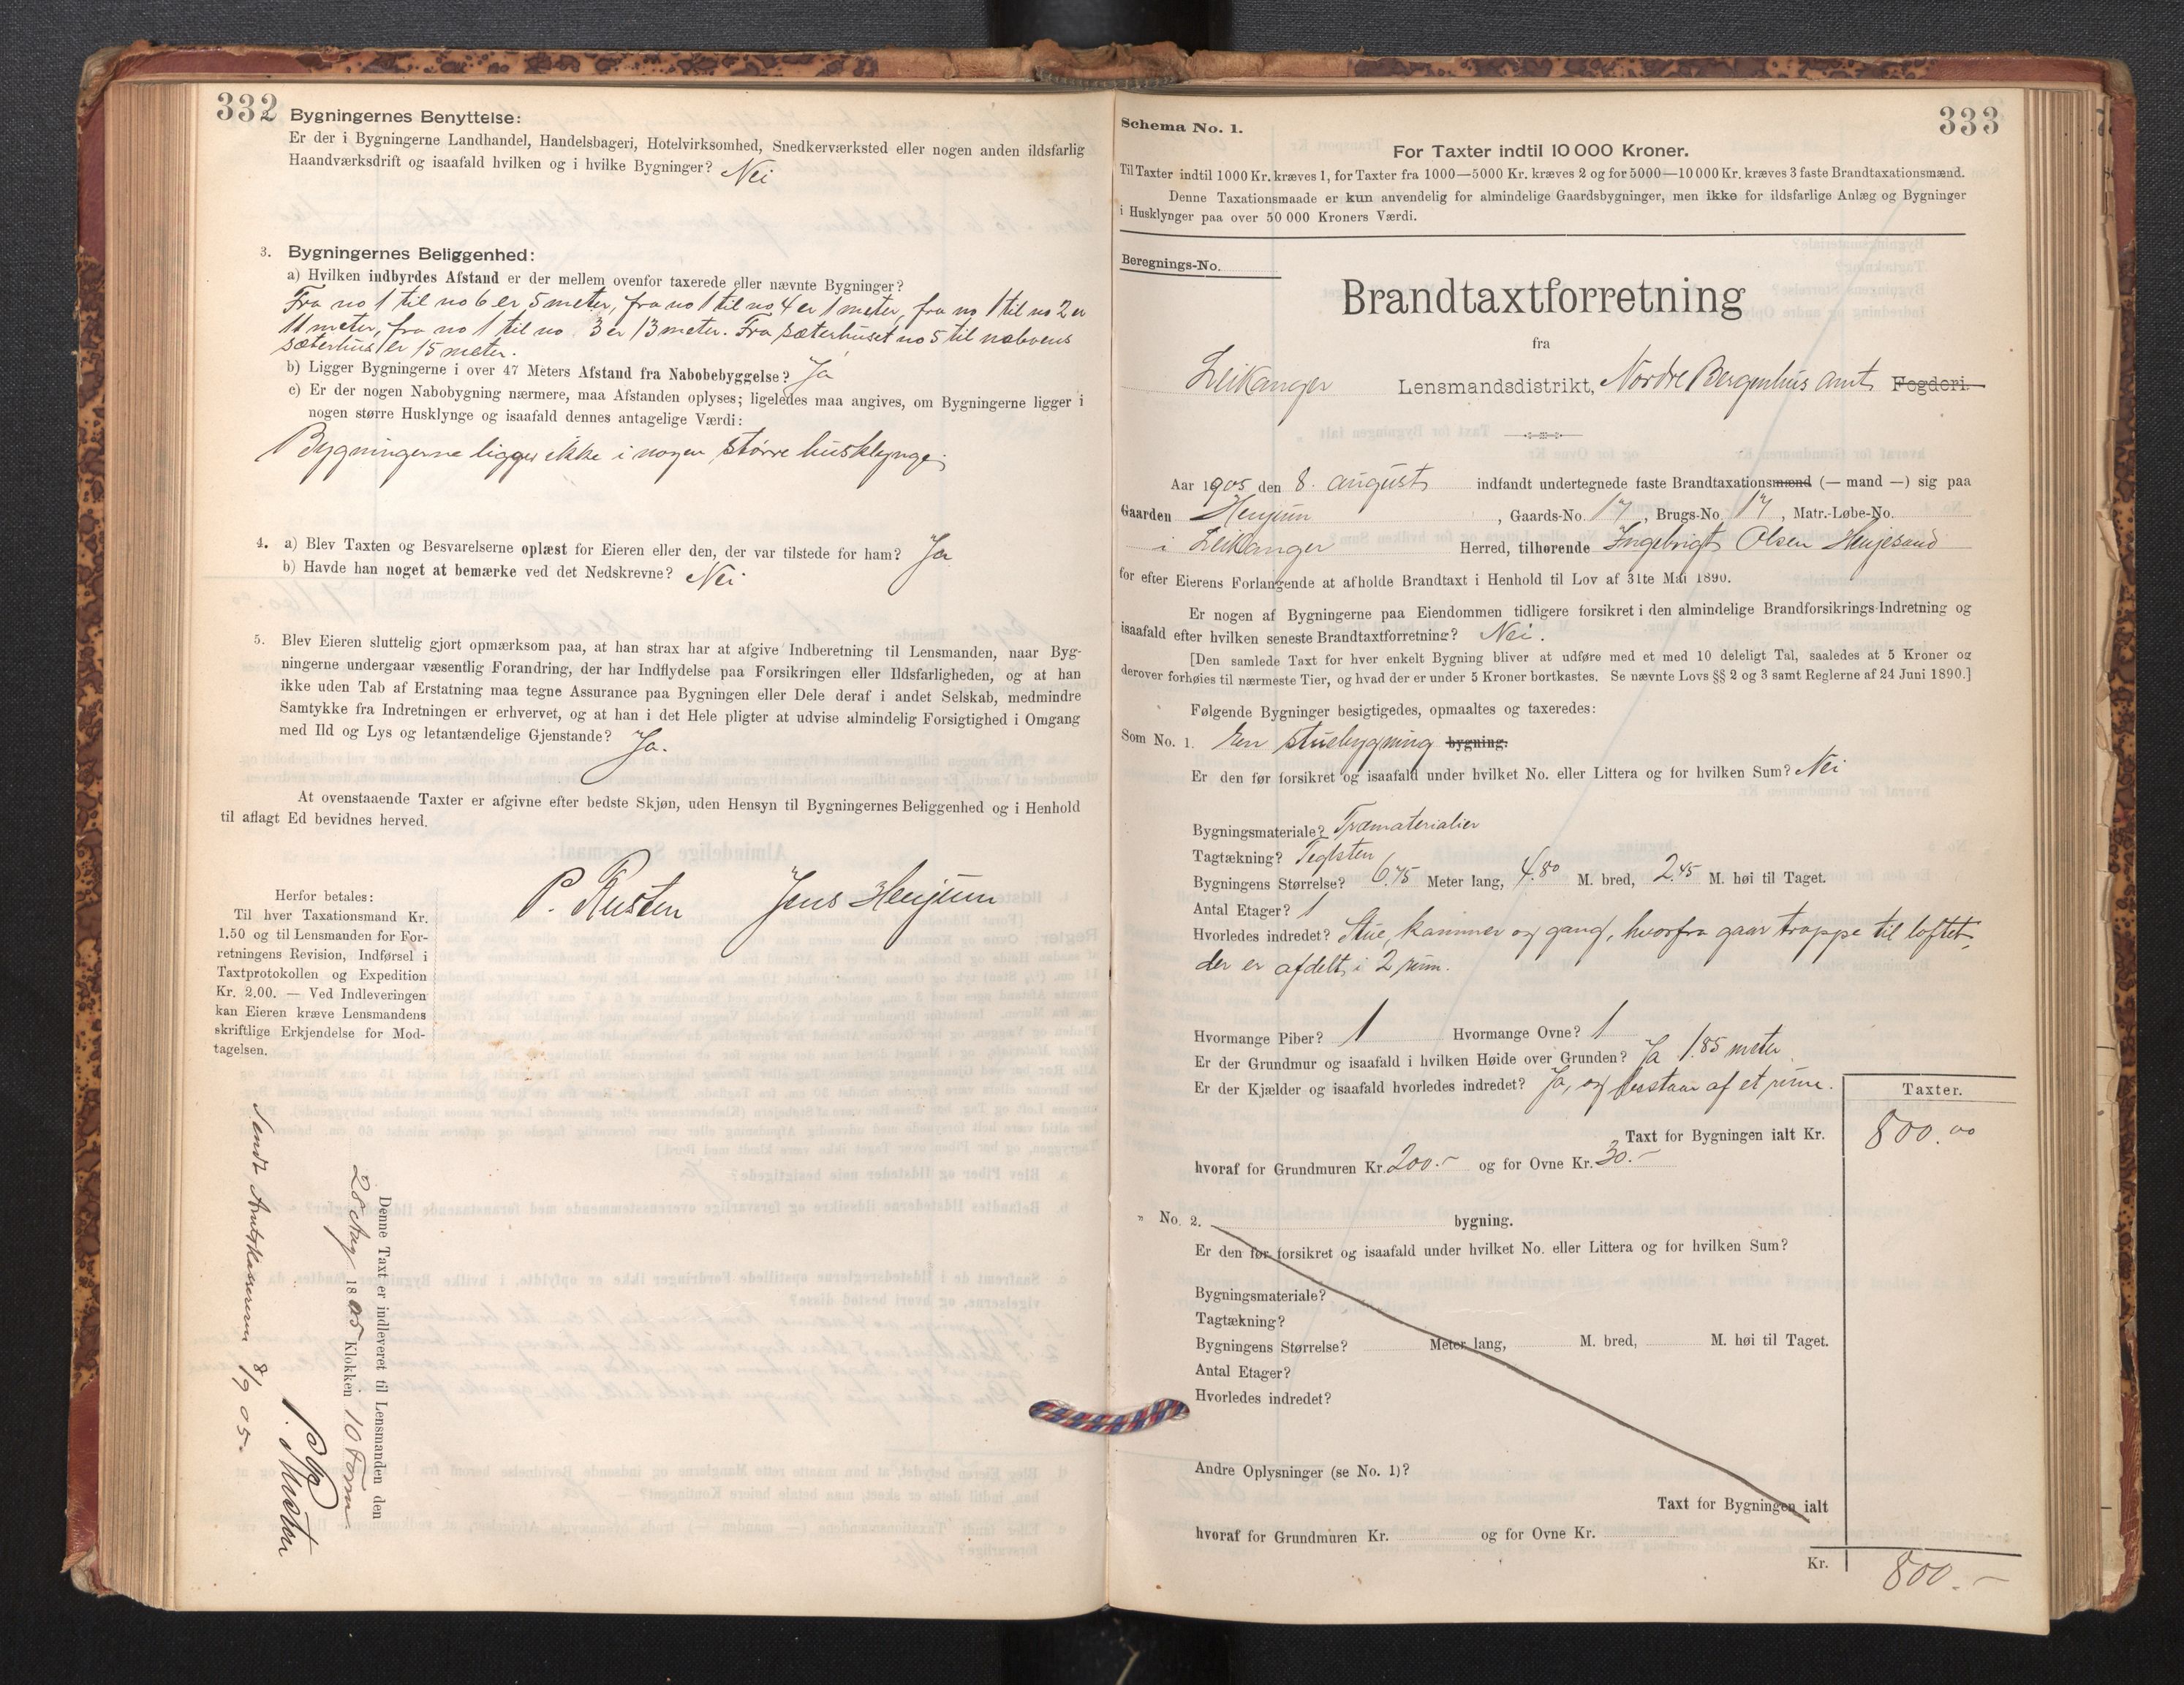 332
Bygningernes Benyttelse:
Er der i Bygningerne Landhandel, Handelsbageri, Hotelvirksomhed, Snedkerværksted eller nogen anden ildsfarlig
Haandværksdrift og isaafald hvilken og i hvilke Bygninger? Nei
3. Bygningernes Beliggenhed:
a) Hvilken indbyrdes Afstand er der mellem ovenfor taxerede eller nævnte Bygninger?
Fra no 1 til no 6 er 5 meter, fra no 1 til no 4 er 1 meter, fra no 1 til no 2 er
11 meter, fra no 1 til no 3 er 13 meter. Fra sæterhuset no 5 til naboens
sæterhus er 15 meter.
b) Ligger Bygningerne i over 47 Meters Afstand fra Nabobebyggelse? Ja
c) Er der nogen Nabobygning nærmere, maa Afstanden oplyses; ligeledes maa angives, om Bygningerne ligger i
nogen større Husklynge og isaafald dennes antagelige Værdi:
Bygningerne ligger ikke i nogen større husklynge.
4. a) Blev Taxten og Besvarelserne oplæst for Eieren eller den, der var tilstede for ham? Ja
b) Havde han noget at bemærke ved det Nedskrevne? Nei
5. Blev Eieren sluttelig gjort opmærksom paa, at han strax har at afgive Indberetning til Lensmanden, naar Byg-
ningerne undergaar væsentlig Forandring, der har Indflydelse paa Forsikringen eller Ildsfarligheden, og at han
ikke uden Tab af Erstatning maa tegne Assurance paa Bygningen eller Dele deraf i andet Selskab, medmindre
Samtykke fra Indretningen er erhvervet, og at han i det Hele pligter at udvise almindelig Forsigtighed i Omgang
med Ild og Lys og letantændelige Gjenstande? Ja.
At ovenstaaende Taxter er afgivne efter bedste Skjøn, uden Hensyn til Bygningernes Beliggenhed og i Henhold
til aflagt Ed bevidnes herved.
P. Rusten Jens Henjum
Herfor betales:
Til hver Taxationsmand Kr.
1.50 og til Lensmanden for For-
retningens Revision, Indførsel i
Taxtprotokollen og Expedition
Kr. 2.00. — Ved Indleveringen
kan Eieren kræve Lensmandens
skriftlige Erkjendelse for Mod-
tagelsen.
Denne Taxt er indleveret til Lensmanden den
28 Aug 1805 Klokken 10 Form
P. Rusten
Sendt Amtskassereren 8/9 05.
333
Schema No. 1.
For Taxter indtil 10 000 Kroner.
Til Taxter indtil 1000 Kr. kræves 1, for Taxter fra 1000—5000 Kr. kræves 2 og for 5000—10 000 Kr. kræves 3 faste Brandtaxationsmænd.
Denne Taxationsmaade er kun anvendelig for almindelige Gaardsbygninger, men ikke for ildsfarlige Anlæg og Bygninger
i Husklynger paa over 50 000 Kroners Værdi.
Beregnings-No.
Brandtaxtforretning
fra
Leikanger Lensmandsdistrikt, Nordre Bergenhus amt Fogderi.
Aar 1905 den 8. august indfandt undertegnede faste Brandtaxationsmænd (— mand —) sig paa
Gaarden Henjum, Gaards-No. 17, Brugs-No. 17, Matr.-Løbe-No.
i Leikanger Herred, tilhørende Ingebrigt Olsen Henjesand
for efter Eierens Forlangende at afholde Brandtaxt i Henhold til Lov af 31te Mai 1890.
Er nogen af Bygningerne paa Eiendommen tidligere forsikret i den almindelige Brandforsikrings-Indretning og
isaafald efter hvilken seneste Brandtaxtforretning? Nei.
[Den samlede Taxt for hver enkelt Bygning bliver at udføre med et med 10 deleligt Tal, saaledes at 5 Kroner og
derover forhøies til nærmeste Tier, og hvad der er under 5 Kroner bortkastes. Se nævnte Lovs §§ 2 og 3 samt Reglerne af 24 Juni 1890.]
Følgende Bygninger besigtigedes, opmaaltes og taxeredes:
Som No. 1. En stuebygning bygning.
Er den før forsikret og isaafald under hvilket No. eller Littera og for hvilken Sum? Nei
Bygningsmateriale? Træmaterialier
Tagtækning? Teglsten
Bygningens Størrelse? 6.75 Meter lang, 4.80 M. bred, 2.45 M. høi til Taget.
Antal Etager? 1
Hvorledes indredet? Stue, kammer og gang, hvorfra gaar trappe til loftet,
der er afdelt i 2 rum.
Hvormange Piber? 1 Hvormange Ovne? 1
Er der Grundmur og isaafald i hvilken Høide over Grunden? Ja 1.85 meter
Er der Kjælder og isaafald hvorledes indredet? Ja, og bestaar af et rum.
Taxter.
Taxt for Bygningen ialt Kr. 800.00
hvoraf for Grundmuren Kr. 200.- og for Ovne Kr. 30.-
" No. 2. bygning.
Er den før forsikret og isaafald under hvilket No. eller Littera og for hvilken Sum?
Bygningsmateriale?
Tagtækning?
Bygningens Størrelse? Meter lang, M. bred, M. høi til Taget.
Antal Etager?
Hvorledes indredet?
Andre Oplysninger (se No. 1)?
Taxt for Bygningen ialt
hvoraf for Grundmuren Kr. og for Ovne Kr.
Kr. 800.-